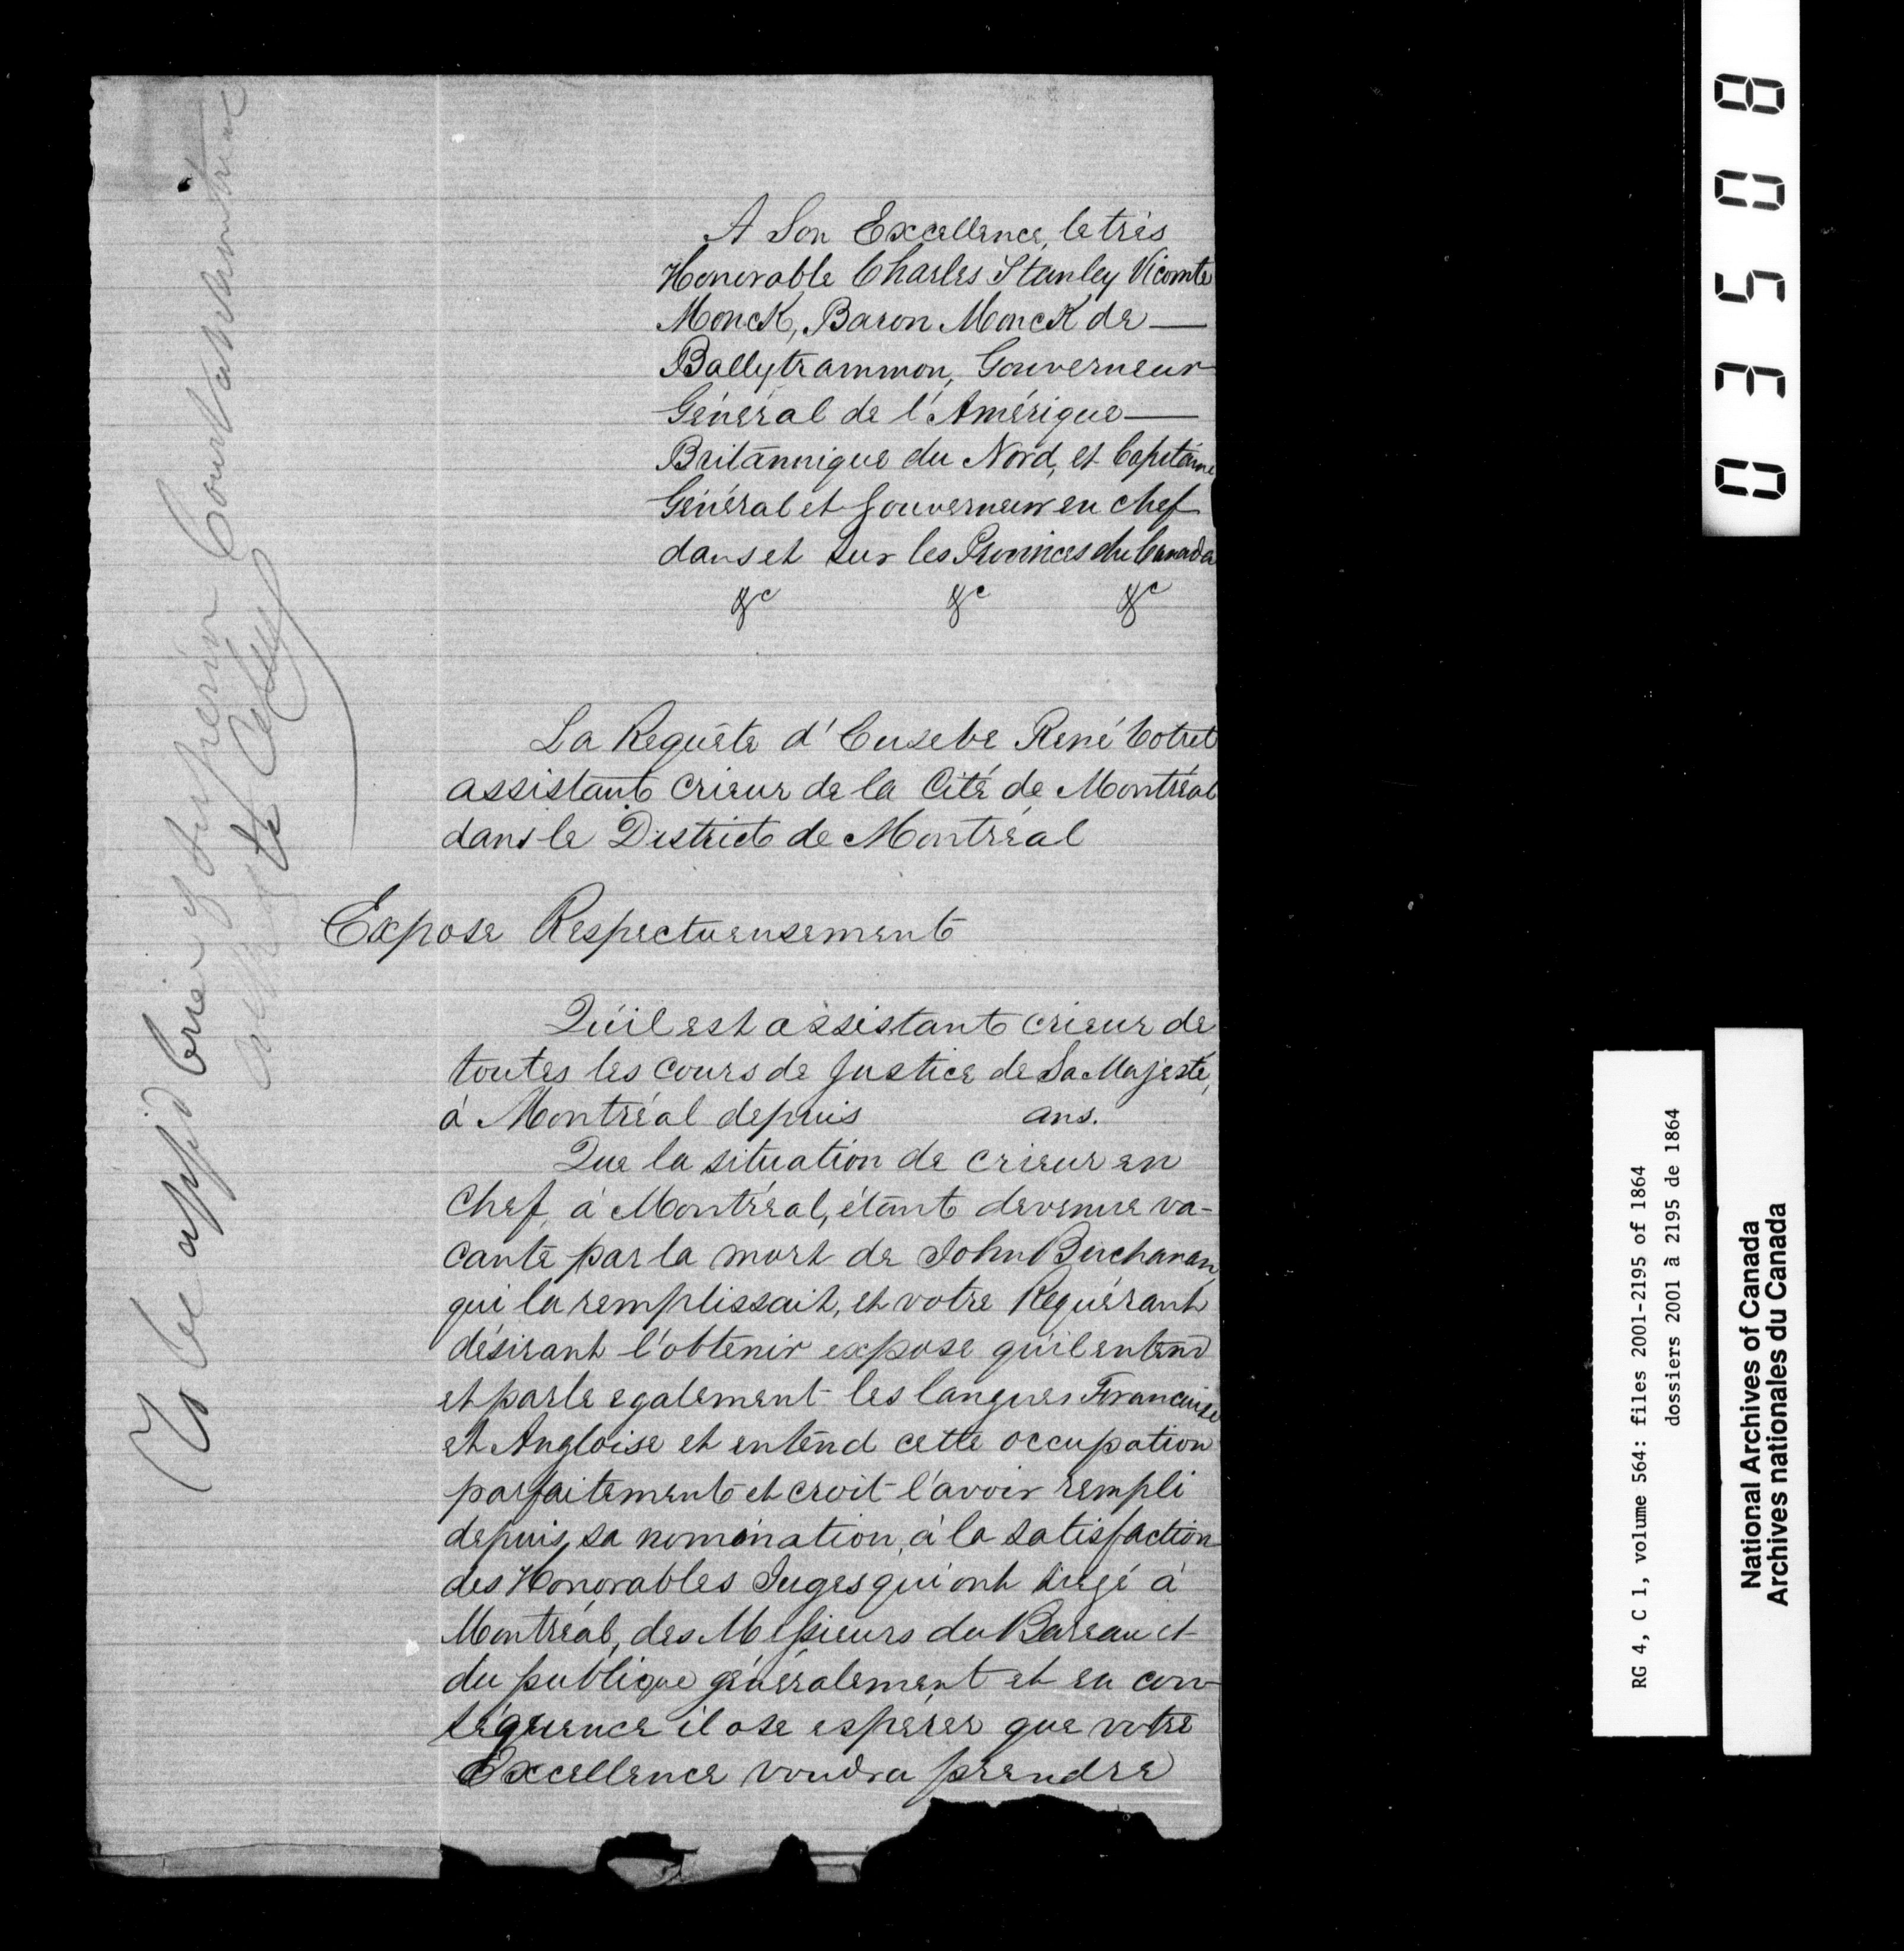 A Son Excellence, le très
Honorable Charles Stanley Vicomte
Monck, Baron Monck de —
Ballytrammon, Gouverneur
Général de l'Amérique —
Britannique du Nord, et Capitaine
Général et Gouverneur en chef
dans et sur les Provinces du Canada
&c &c &c
La Requête d'Eusebe René Cotret
assistant crieur de la Cité de Montréal
dans le District de Montréal
Expose Respectueusement
Qu'il est assistant crieur de
toutes les cours de Justice de Sa Majesté,
à Montréal depuis ans.
Que la situation de crieur en
Chef, à Montréal, étant devenue va-
cante par la mort de John Buchanan,
qui la remplissait, et votre Requérant
désirant l'obtenir expose qu'il entend
et parle egalement les langues Francaise
et Angloise et entend cette occupation
parfaitement et croit l'avoir rempli
depuis sa nomination, à la satisfaction
des Honorables Juges qui ont siegé à
Montréal, des Messieurs du Barreau et
du publique généralement et en con-
séquence il ose espérer que votre
Excellence voudra prendre
To be app'd Crier
03508
RG 4, C 1, volume 564: files 2001-2195 of 1864
dossiers 2001 à 2195 de 1864
National Archives of Canada
Archives nationales du Canada